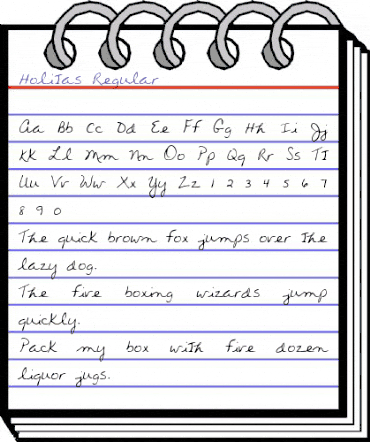 HoliJas Regular
Aa Bb Cc Dd Ee Ff Gg Hh Ii Jj
Kk Ll Mm Nn Oo Pp Qq Rr Ss Tt
Uu Vv Ww Xx Yy Zz 1 2 3 4 5 6 7
8 9 0
The quick brown fox jumps over the
lazy dog.
The five boxing wizards jump
quickly.
Pack my box with five dozen
liquor jugs.